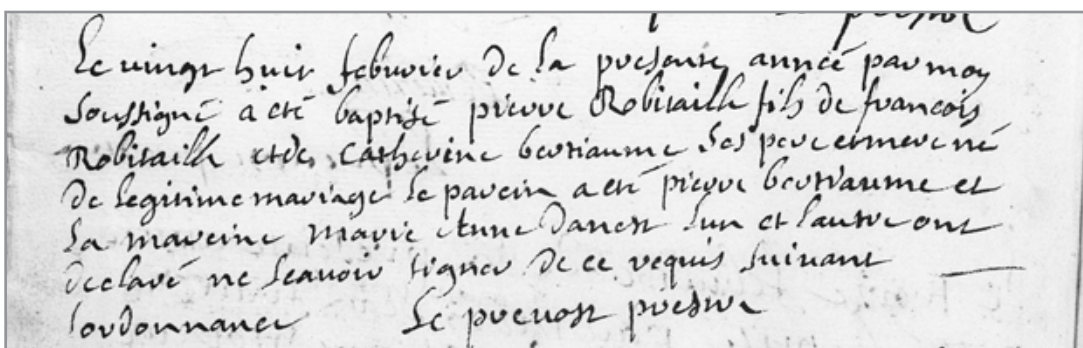 Le vingt huit febvrier de la presente année par moy
soussigné a eté baptisé pierre Robitaill fils de francois
Robitaill et de Catherine bertiaume ses pere et mere né
de legitime mariage le parein a eté pierre bertiaume et
la mareine marie Anne danest lun et lautre ont
declaré ne scavoir signer de ce requis suivant
lordonnance Le prevost prestre